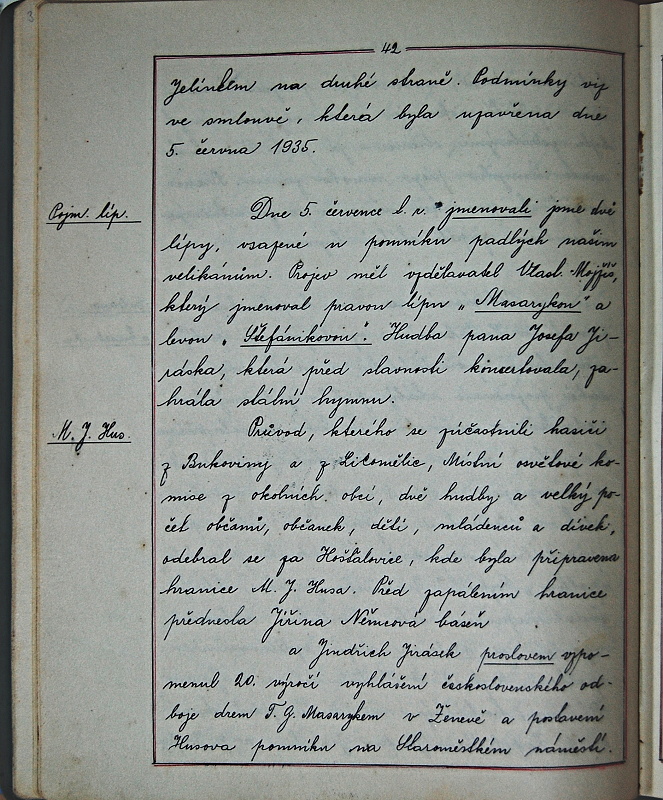 42
Jelínkem na druhé straně. Podmínky viz
ve smlouvě, která byla uzavřena dne
5. června 1935.
Pojm. líp.
Dne 5. července t. r. jmenovali jsme dvě
lípy, vsazené u pomníku padlých našim
velikánům. Projev měl vzdělavatel Vlast. Mojžíš,
který jmenoval pravou lípu „Masarykou" a
levou „Štefánikovou". Hudba pana Josefa Ji-
ráska, která před slavností koncertovala, za-
hrála státní hymnu.
M. J. Hus.
Průvod, kterého se zúčastnili hasiči
z Bukoviny a z Litomělic, Místní osvětové ko-
mise z okolních obcí, dvě hudby a velký po-
čet občanů, občanek, dětí, mládenců a dívek,
odebral se za Hošťalovice, kde byla připravena
hranice M. J. Husa. Před zapálením hranice
přednesla Jiřina Němcová báseň
a Jindřich Jirásek proslovem vzpo-
menul 20. výročí vyhlášení československého od-
boje drem T. G. Masarykem v Ženevě a postavení
Husova pomníku na Staroměstkém náměstí.